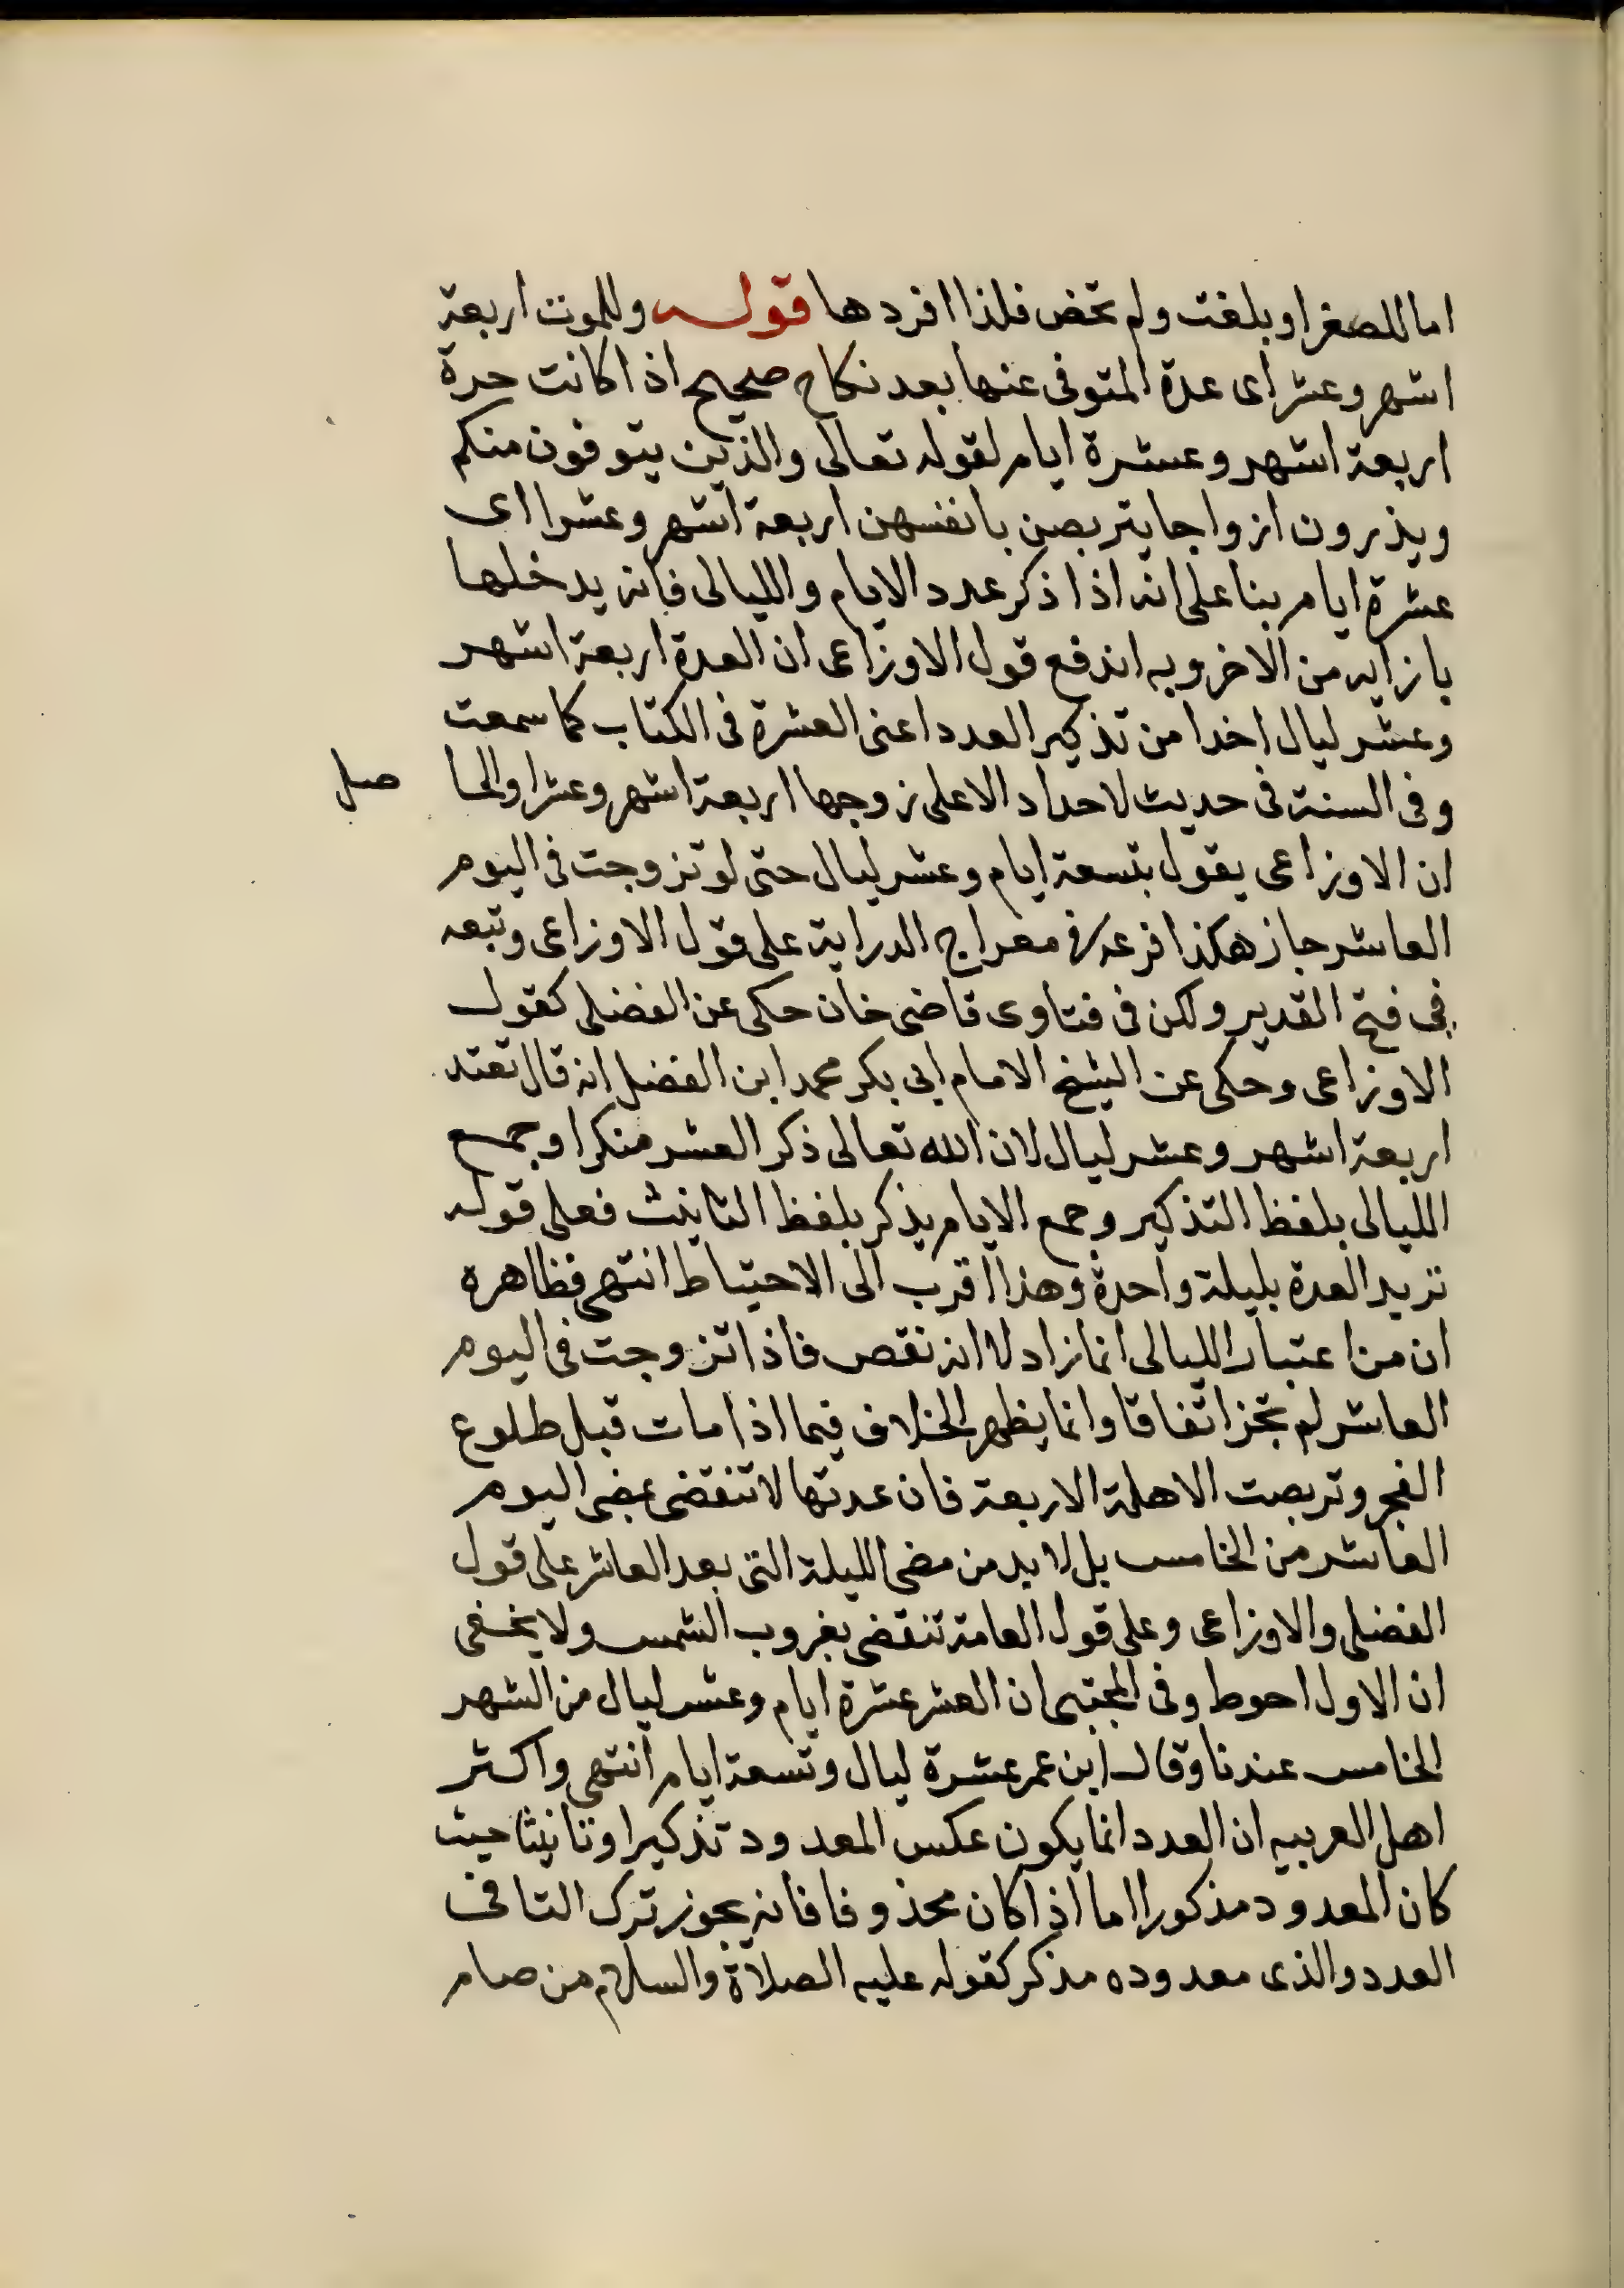 اما للصغر او بلغت ولم تحض فلذا افردها قوله وللموت اربعة
اشهر وعشر اى عدة المتوفى عنها بعد نكاح صحيح اذا كانت حرة
اربعة اشهر وعشرة ايام لقوله تعالى والذين يتوفون منكم
ويذرون ازواجا يتربصن بانفسهن اربعة اشهر وعشرا اى
عشرة ايام بنا على انه اذا ذكر عدد الايام والليالى فانه يدخلها
بازايه من الاخر وبه اندفع قول الاوزاعى ان العدة اربعة اشهر
وعشر ليال اخدا من تذكير العدد اعنى العشرة فى الكتاب كما سمعت
وفى السنة فى حديث لاحداد الا على زوجها اربعة اشهر وعشرا والحاصل
ان الاوزاعى يقول بتسعة ايام وعشر ليال حتى لو تزوجت فى اليوم
العاشر جاز هكذا فرعه فى معراج الدراية على قول الاوزاعى وتبعه
فى فتح القدير ولكن فى فتاوى قاضى خان حكى عن الفضلى كقول
الاوزاعى وحكى عن الشيخ الامام ابى بكر محمد ابن الفضل انه قال تعتد
اربعة اشهر وعشر ليال لان الله تعالى ذكر العشر منكرا وجمع
الليالى بلفظ التذكير وجمع الايام يذكر بلفظ التانيث فعلى قوله
تزيد العدة بليلة واحدة وهذا اقرب الى الاحتياط انتهى فظاهره
ان من اعتبار الليالى انما زاد لا انه نقص فاذا تزوجت فى اليوم
العاشر لم تجز اتفاقا وانما يظهر الخلاف فيما اذا مات قبل طلوع
الفجر وتربصت الاهلة الاربعة فان عدتها لا تنقضى بمضى اليوم
العاشر من الخامس بل لا بد من مضى الليلة التى بعد العاشر على قول
الفضلى والاوزاعى وعلى قول العامة تنقضى بغروب الشمس ولا يخفى
ان الاول احوط وفى المجتبى ان العشر عشرة ايام وعشر ليال من الشهر
الخامس عندنا وقال ابن عمر عشرة ليال وتسعة ايام انتهى واكثر
اهل العربيه ان العدد انما يكون عكس المعدود تذكيرا وتانيثا حيث
كان المعدود مذكورا اما اذا كان محذوفا فانه يجوز ترك التا فى
العدد والذى معدوده مذكر كقوله عليه الصلاة والسلام من صام